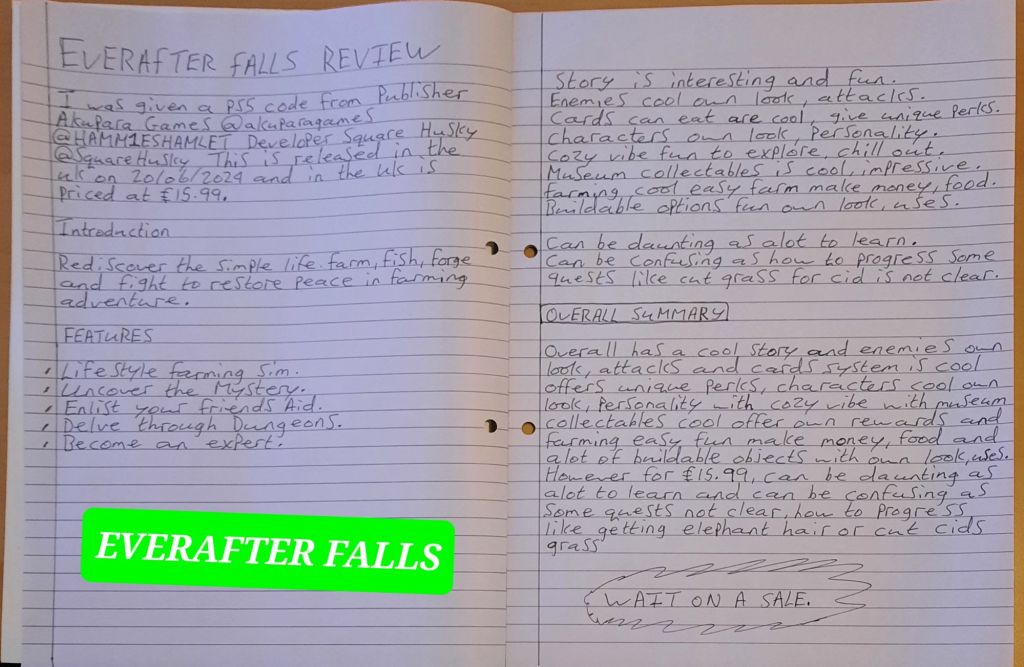 EVERAFTER FALLS REVIEW
I was given a PS5 code from Publisher
Akupara Games @akuparagames
@HAMM1ESHAMLET Developer Square Husky
@SquareHusky This is released in the
uk on 20/06/2024 and in the uk is
Priced at £15.99.
Introduction
Rediscover the simple life farm, fish, forge
and fight to restore peace in farming
adventure.
FEATURES
, Life style farming sim.
, Uncover the Mystery.
, Enlist your friends Aid.
, Delve through Dungeons.
, Become an expert.
EVERAFTER FALLS
Story is interesting and fun.
Enemies cool own look, attacks.
Cards can eat are cool, give unique Perks.
Characters own look, Personality.
Cozy vibe fun to explore, chill out.
Museum collectables is cool, impressive.
farming cool easy farm make money, food.
Buildable options fun own look, uses.
Can be daunting as alot to learn.
Can be confusing as how to progress some
quests like cut grass for cid is not clear.
OVERALL SUMMARY
Overall has a cool story and enemies own
look, attacks and cards system is cool
offers unique Perks, characters cool own
look, Personality with cozy vibe with museum
collectables cool offer own rewards and
farming easy fun make money, food and
alot of buildable objects with own look, uses.
However for £15.99, can be daunting as
alot to learn and can be confusing as
some quests not clear, how to Progress
like getting elephant hair or cut cids
grass
WAIT ON A SALE.